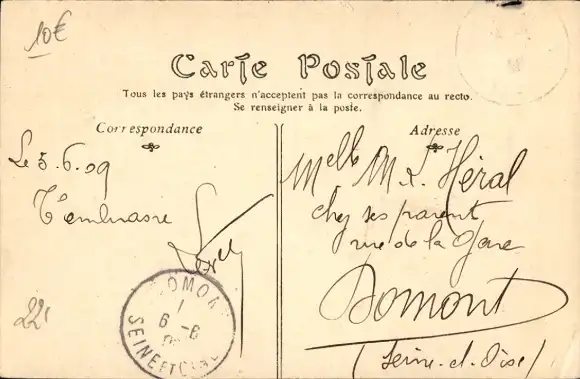 10€
Carte Postale
Tous les pays étrangers n'acceptent pas la correspondance au recto.
Se renseigner à la poste.
Correspondance
Adresse
Le 5.6.09
T'embrasse
Melle M. L. Héral
chez ses parent
rue de la Gare
Domont
(Seine-et-Oise)
DOMON
1
6 -6
SEINE ET OISE
22